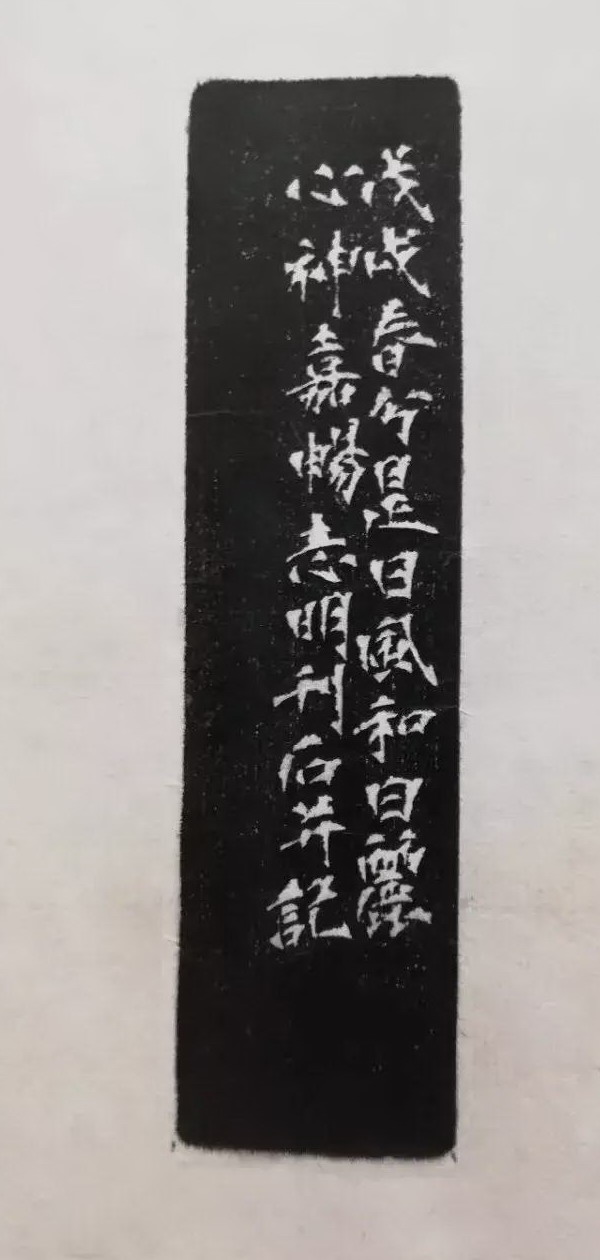 戊戌春分是日風和日麗
心神嘉暢志明刊石并記